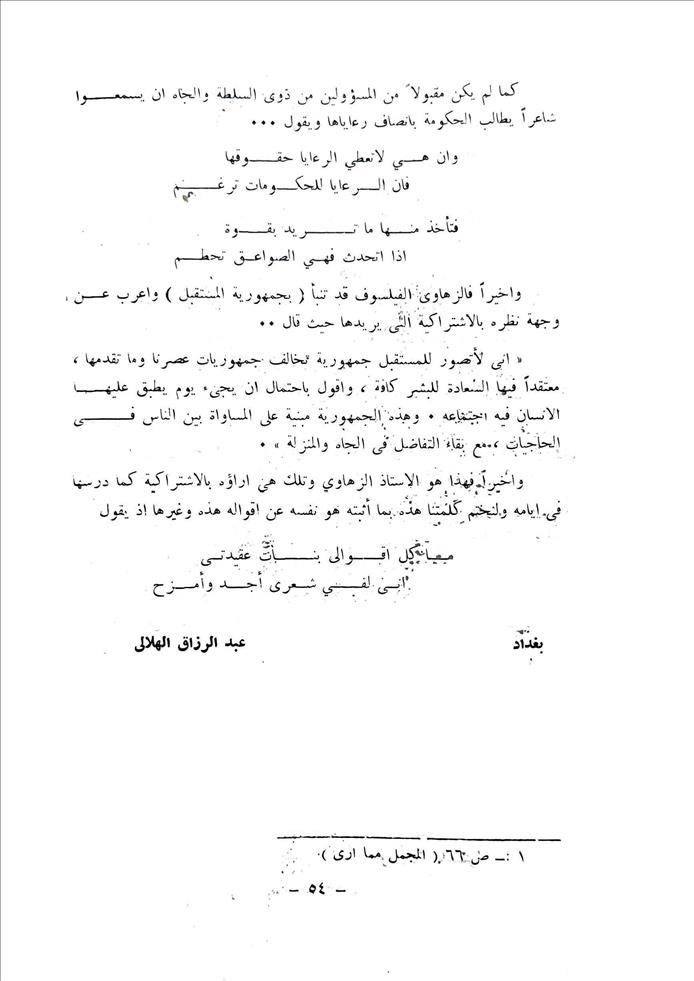 كما لم يكن مقبولاً من المسؤولين من ذوى السلطة والجاه ان يسمعوا
شاعراً يطالب الحكومة بانصاف رعاياها ويقول ...
وان هي لاتعطي الرعايا حقوقها
فان الرعايا للحكومات ترغم
فتأخذ منها ما تريد بقوة
اذا اتحدث فهي الصواعق تحطم
واخيراً فالزهاوى الفيلسوف قد تنبأ ( بجمهورية المستقبل ) واعرب عن
وجهة نظره بالاشتراكية التى يريدها حيث قال ..
« انى لأتصور للمستقبل جمهورية تخالف جمهوريات عصرنا وما تقدمها ،
معتقداً فيها السعادة للبشر كافة ، واقول باحتمال ان يجىء يوم يطبق عليها
الانسان فيه اجتماعه . وهذه الجمهورية مبنية على المساواة بين الناس فى
الحاجيات ، مع بقاء التفاضل فى الجاه والمنزلة » .
واخيراً فهذا هو الاستاذ الزهاوي وتلك هى اراؤه بالاشتراكية كما درسها
فى ايامه ولنختم كلمتنا هذه بما أثبته هو نفسه عن اقواله هذه وغيرها اذ يقول
كل اقوالى بنات عقيدتى
انى لفي شعرى أجد وأمزح
بغداد
عبد الرزاق الهلالى
١ :ـ ص ٦٦ ( المجمل مما ارى ).
ـ ٥٤ ـ